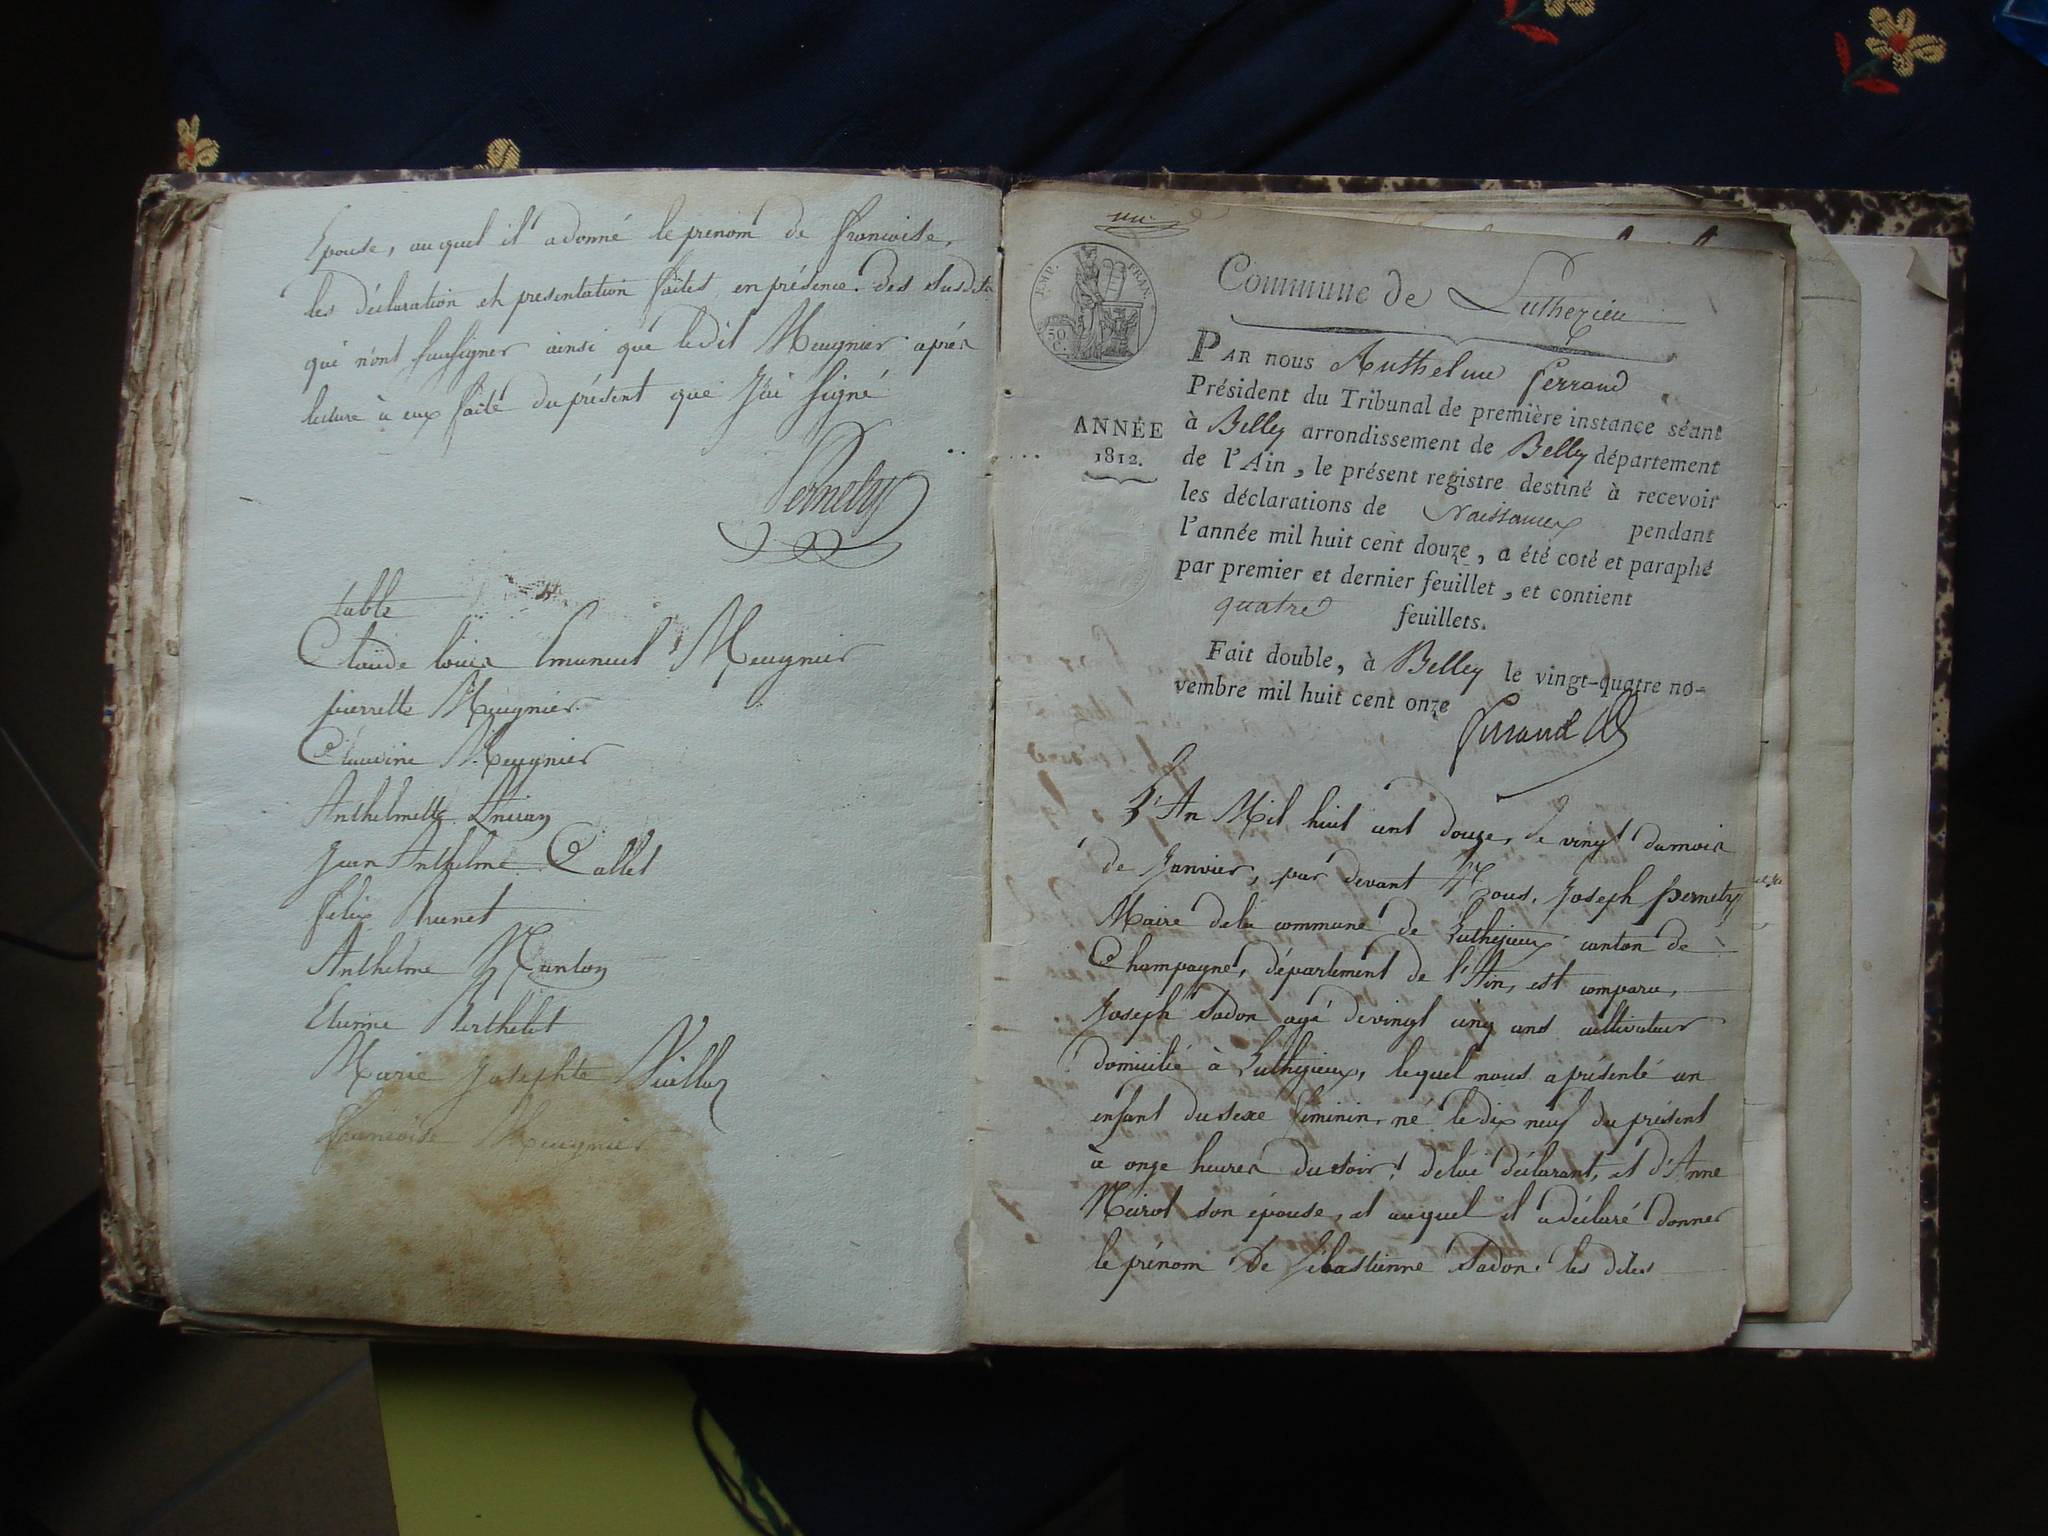 Epouse, auquel il a donné le prenom de francoise,
les déclaration et presentation faites en présence des susdits
qui n'ont su signer ainsi que ledit Meugnier après
lecture à eux faite du présent que j'ai signé
Pernety
table
Claude louis Emanuel Meugnier
pierrette Meugnier
Claudine Meugnier
Anthelmette
Jean Anthelme Callet
félix Brunet
Anthelme Manton
Etienne Berthelet
Marie Josephte
francoise Meugnier
un
EMP. FRAN.
50 C.
Commune de Luthezieu
ANNÉE
1812.
PAR nous Anthelme Ferrand
Président du Tribunal de première instance séant
à Belley arrondissement de Belley département
de l'Ain, le présent registre destiné à recevoir
les déclarations de Naissances pendant
l'année mil huit cent douze, a été coté et paraphé
par premier et dernier feuillet, et contient
quatre feuillets.
Fait double, à Belley le vingt-quatre no-
vembre mil huit cent onze
Ferrand
L'An Mil huit cent douze, le vingt du mois
de Janvier, par devant Nous, Joseph pernety
Maire de la commune de Luthezieux canton de
Champagne, département de l'Ain, est comparu,
Joseph Sadon agé de vingt cinq ans cultivateur
domicilié à Luthezieux, lequel nous a présenté un
enfant du sexe féminin, né le dix neuf du présent
à onze heures du soir, de lui déclarant, et d'Anne
son épouse, et auquel il a déclaré donner
le prénom de Sébastienne Sadon. les dites